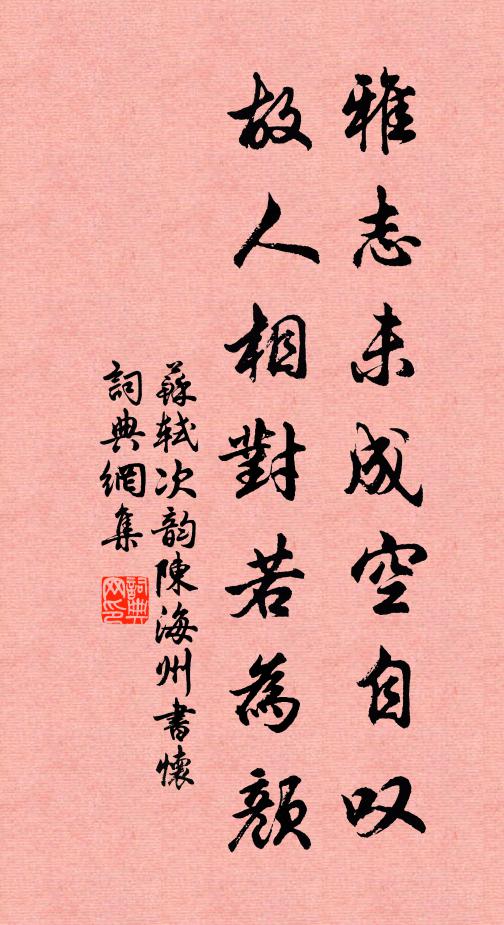 雅志未成空自叹
故人相對若為顏
蘇轼次韵陳海州書懷
詞典網集
詞典網印